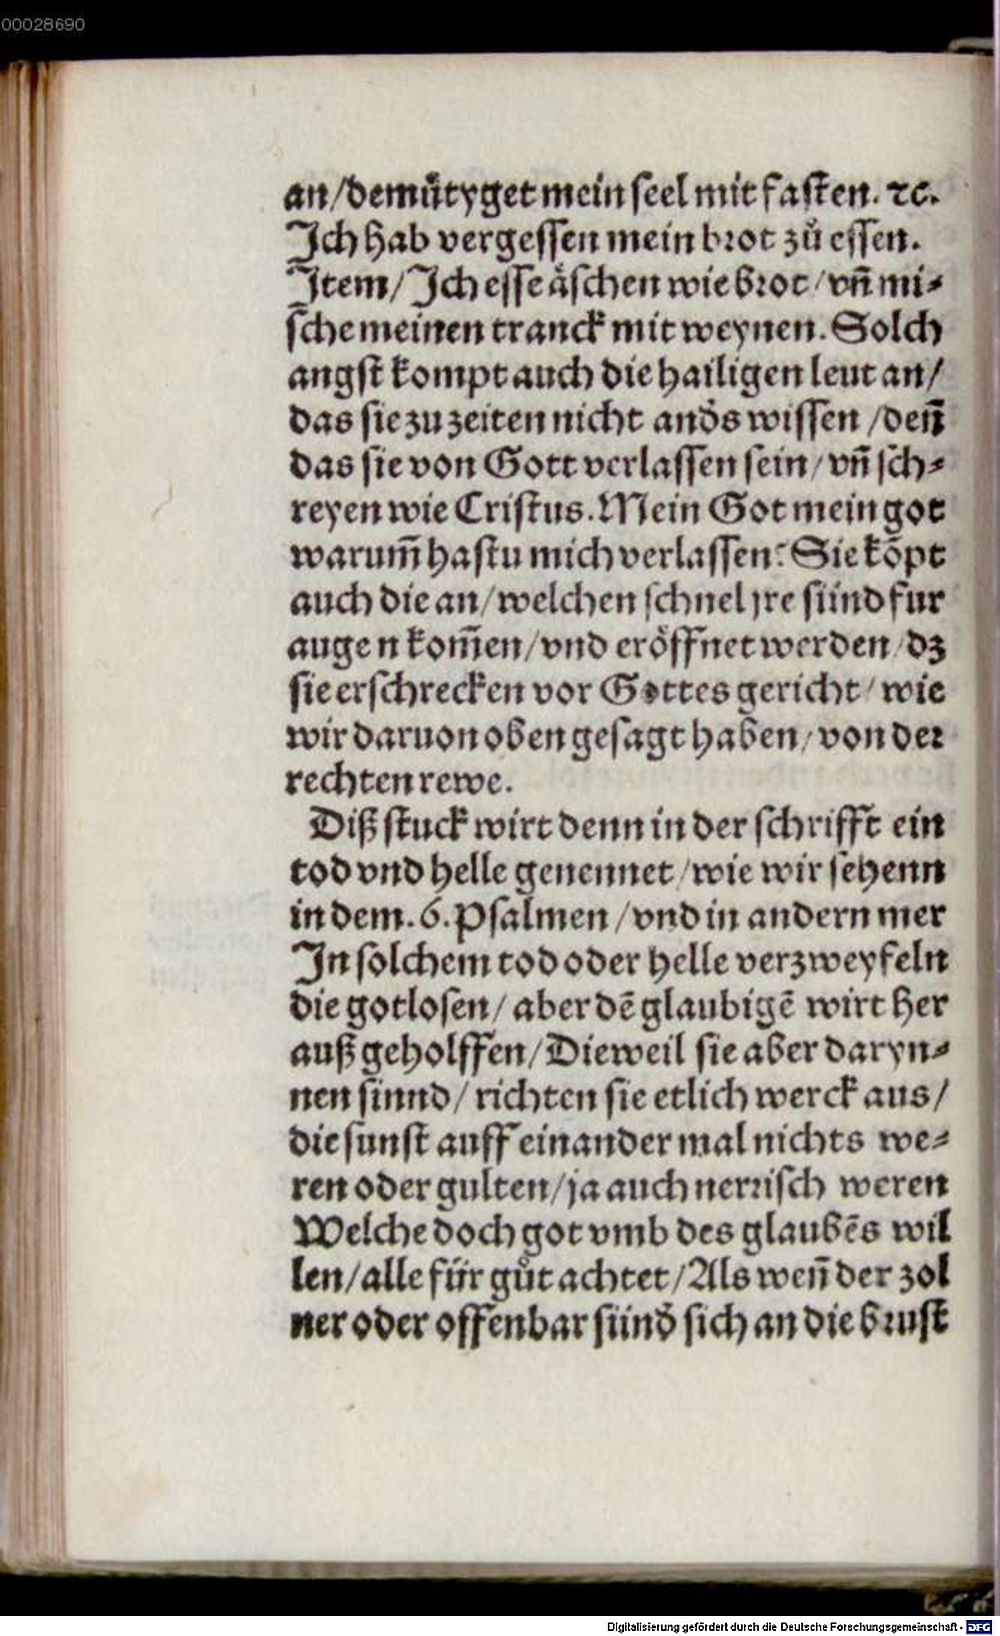 00028690
an/demuͤtyget mein seel mit fasten. ⁊c.
Ich hab vergessen mein brot zuͦ essen.
Item/Ich esse aͤschen wie brot/vñ mi⸗
sche meinen tranck mit weynen. Solch
angst kompt auch die hailigen leut an/
das sie zu zeiten nicht anďs wissen/deñ
das sie von Gott verlassen sein/vñ sch⸗
reyen wie Cristus. Mein Got mein got
warum̃ hastu mich verlassen? Sie kõpt
auch die an/welchen schnel jre sünd fur
augen kom̃en/vnd eroͤffnet werden/dz
sie erschrecken vor Gottes gericht/wie
wir daruon oben gesagt haben/von der
rechten rewe.
Diß stuck wirt denn in der schrifft ein
tod vnd helle genennet/wie wir sehenn
in dem.6.Psalmen/vnd in andern mer
In solchem tod oder helle verzweyfeln
die gotlosen/aber dẽ glaubigẽ wirt her
auß geholffen/Dieweil sie aber daryn⸗
nen sinnd/richten sie etlich werck aus/
die sunst auff ein ander mal nichts we⸗
ren oder gulten/ja auch nerrisch weren
Welche doch got vmb des glaubẽs wil
len/alle für guͦt achtet/Als weñ der zol
ner oder offenbar sünď sich an die brust
Digitalisierung gefördert durch die Deutsche Forschungsgemeinschaft - DFG